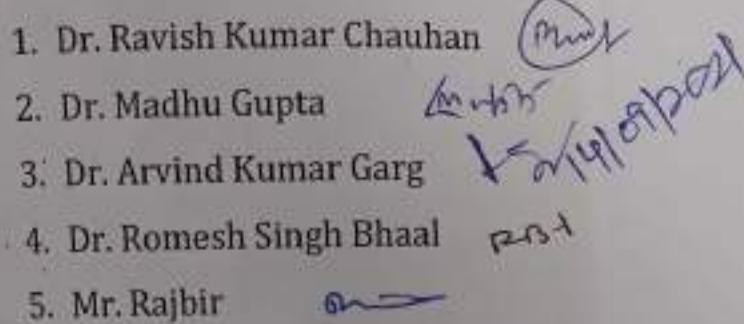 1. Dr. Ravish Kumar Chauhan
2. Dr. Madhu Gupta
3. Dr. Arvind Kumar Garg
4. Dr. Romesh Singh Bhaal
5. Mr. Rajbir